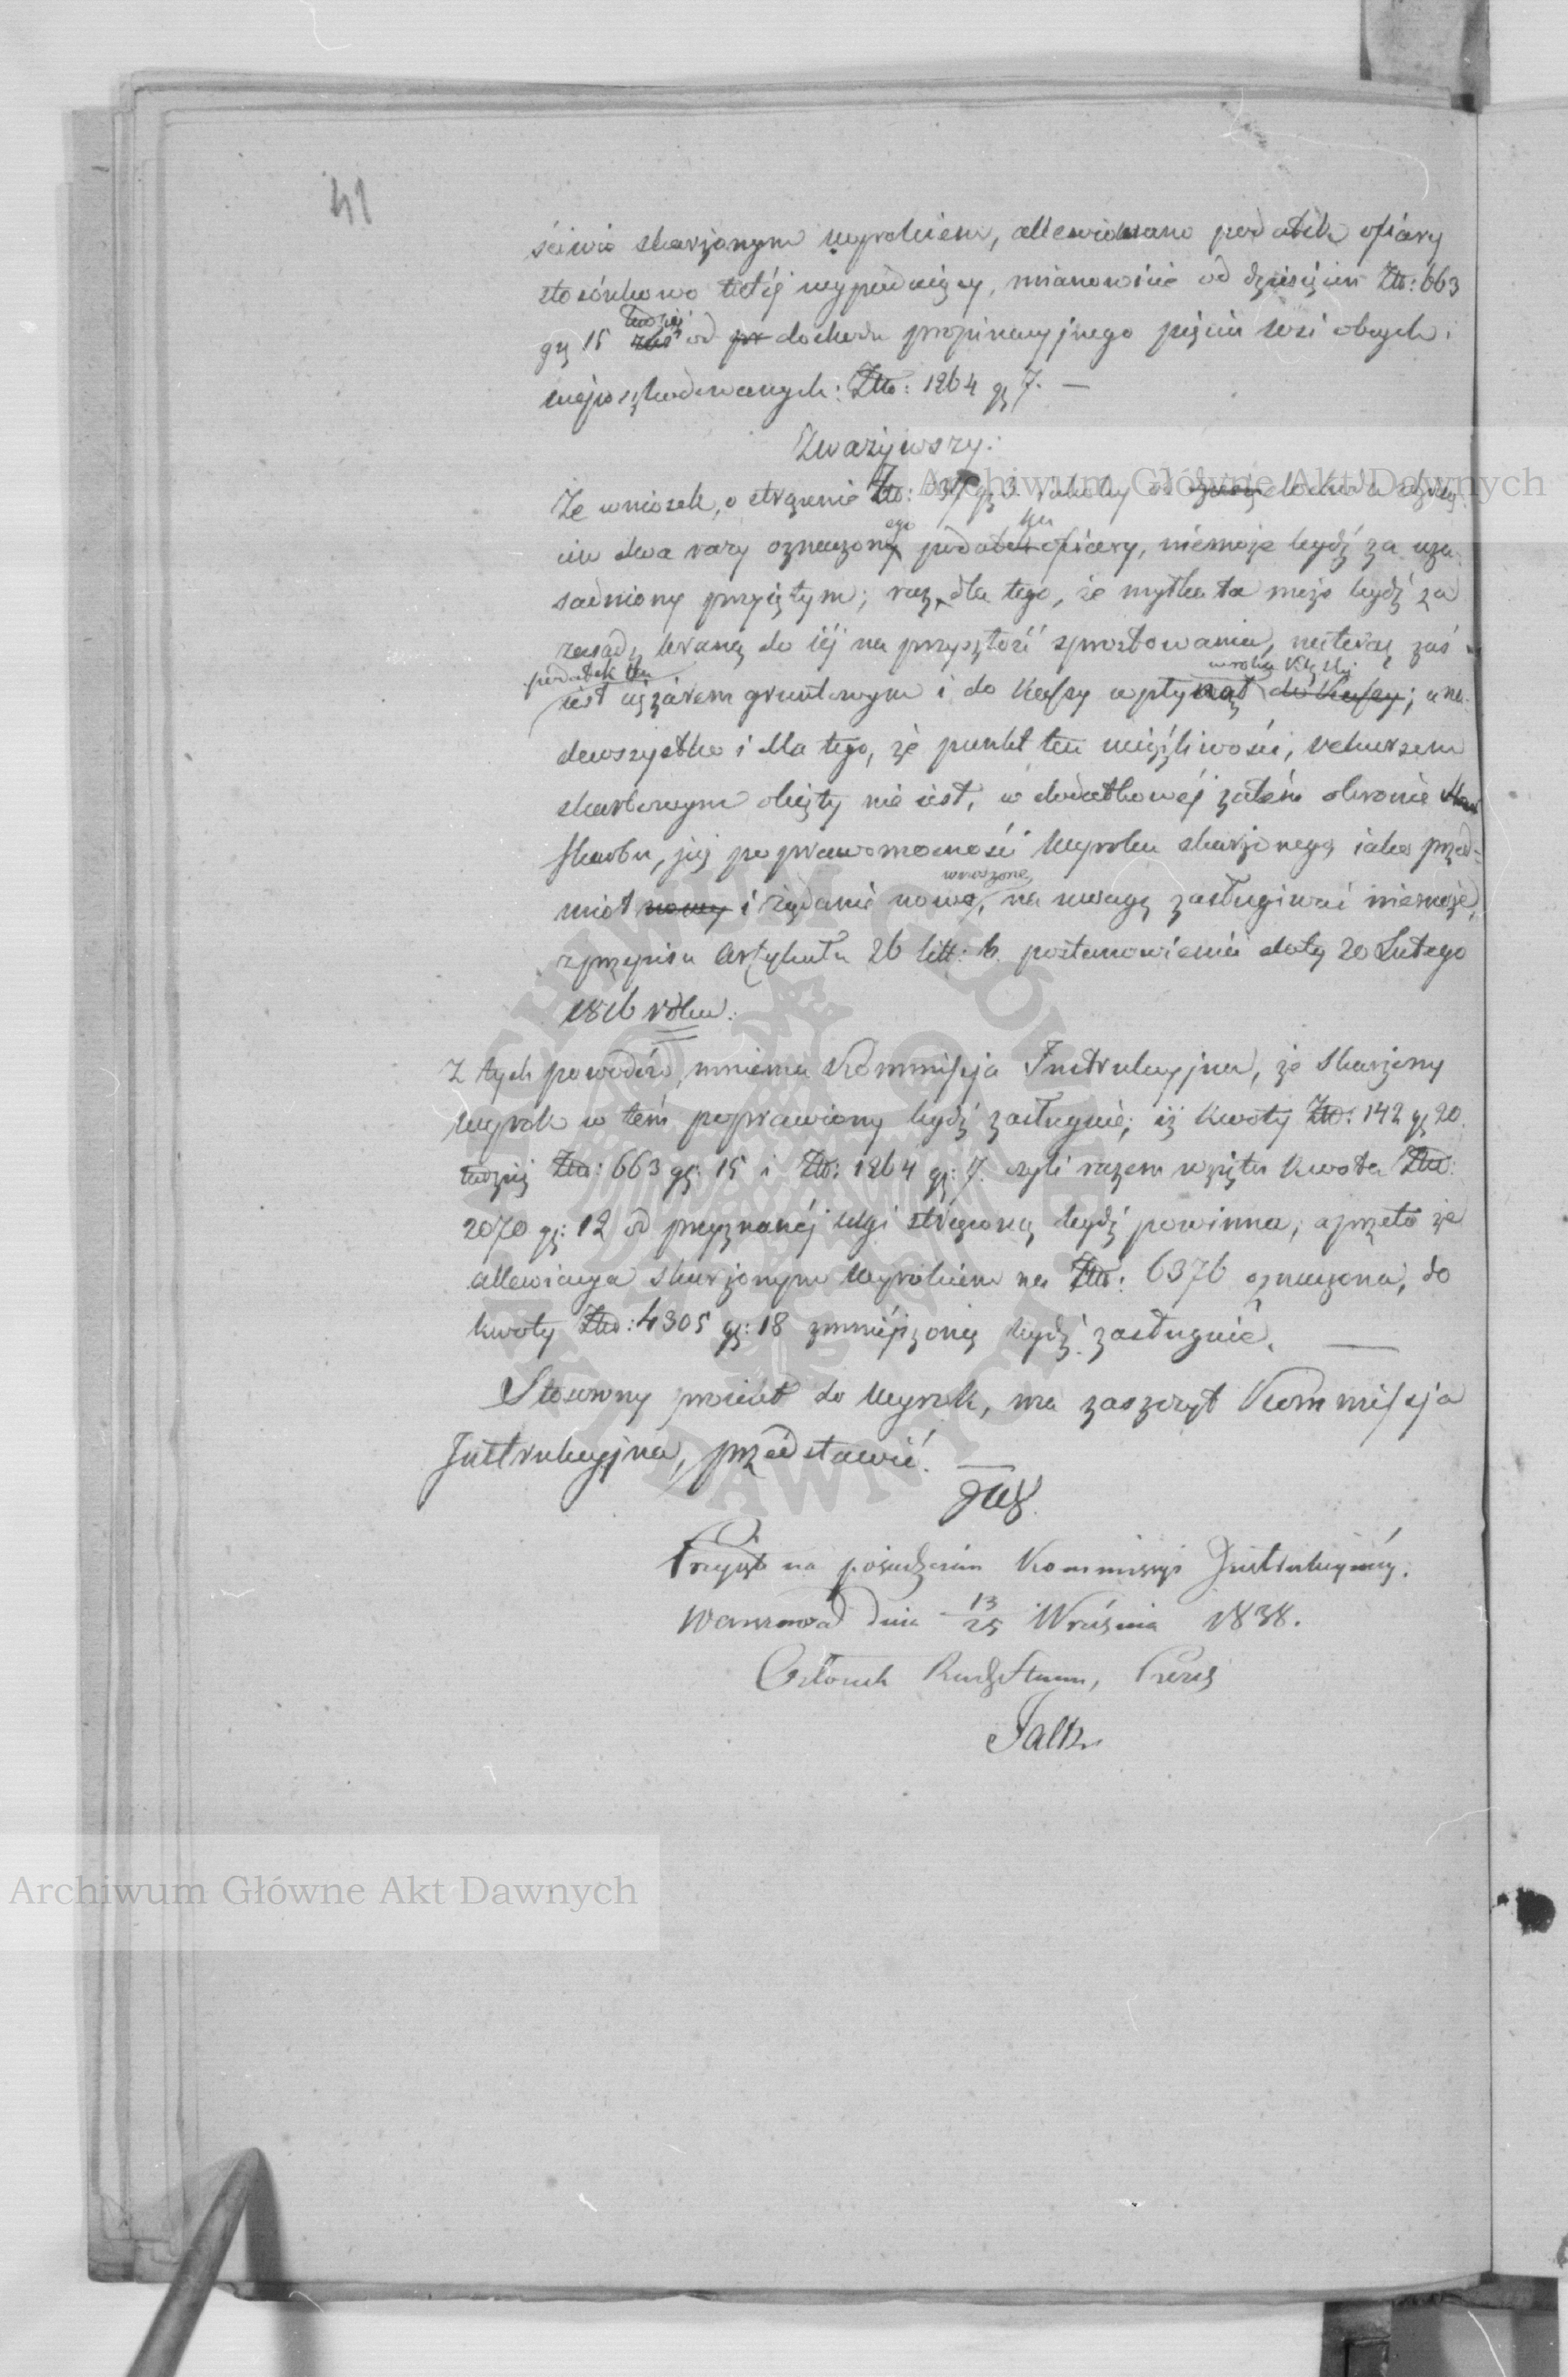 41
ściwie skarżonym wyrokiem, allewiowano podatek ofiary
stosónkowo tutéj wypadaiący, mianowicie od dziesięcin Złt: 663
gr 15 tudzież od dochodu propinacyjnego pięciu wsi obcych
niepszkodowanych: Złt: 1264 gr 7. —
Zważywszy:
Że wniosek, o strącenie Złt: gr 3 od dochodu
dwa razy oznaczonego podatku ofiary, niemoże bydź za uza-
sadniony przyiętym; raz, dla tego, że myłka ta może bydź za
zasadę braną do iéj na przyszłość sprostowania, na teraz zaś
podatek ten
iest ciężarem gruntowym i do kassy wpłynął do kassy; a na-
dewszystko i dla tego, że punkt ten uciążliwości, rekursem
skarbowym obięty nie iest, w dodatkowéj zatém obronie
skarbu, już po prawomocności wyroku skarżonego iako przed-
wnoszone
miot nowy i żądanie nowe, na uwagę zasługiwać niemoże,
z przepisu Artykułu 26 litt: b. postanowienia daty 20 Lutego
1816 roku.
Z tych powodów, mniema Kommissja Instrukcyjna, że skarżony
wyrok w tém poprawiony bydź zasługuie; iż kwoty Złt: 142 gr 20.
tudzież Złt: 663 gr: 15 i Złt: 1264 gr: 7. czyli razem wzięta kwota Złt:
2070 gr: 12 od przyznanéj ulgi strąconą bydź powinna, a przeto że
allewiacya skarżonym wyrokiem na Złt: 6376 oznaczona, do
kwoty Złt: 4305 gr: 18 zmnieyszoną bydź zasługuie. —
Stosowny proiekt do wyrok, ma zaszczyt Kommissja
Instrukcyjna, przedstawić.
Przyięto na posiedzeniu Kommissyi Instrukcyiney.
Warszawa dnia 13/25 Września 1838.
Członek Rady Stanu, Prezes
Falk
Archiwum Główne Akt Dawnych
Archiwum Główne Akt Dawnych
ARCHIWUM GŁÓWNE AKT DAWNYCH